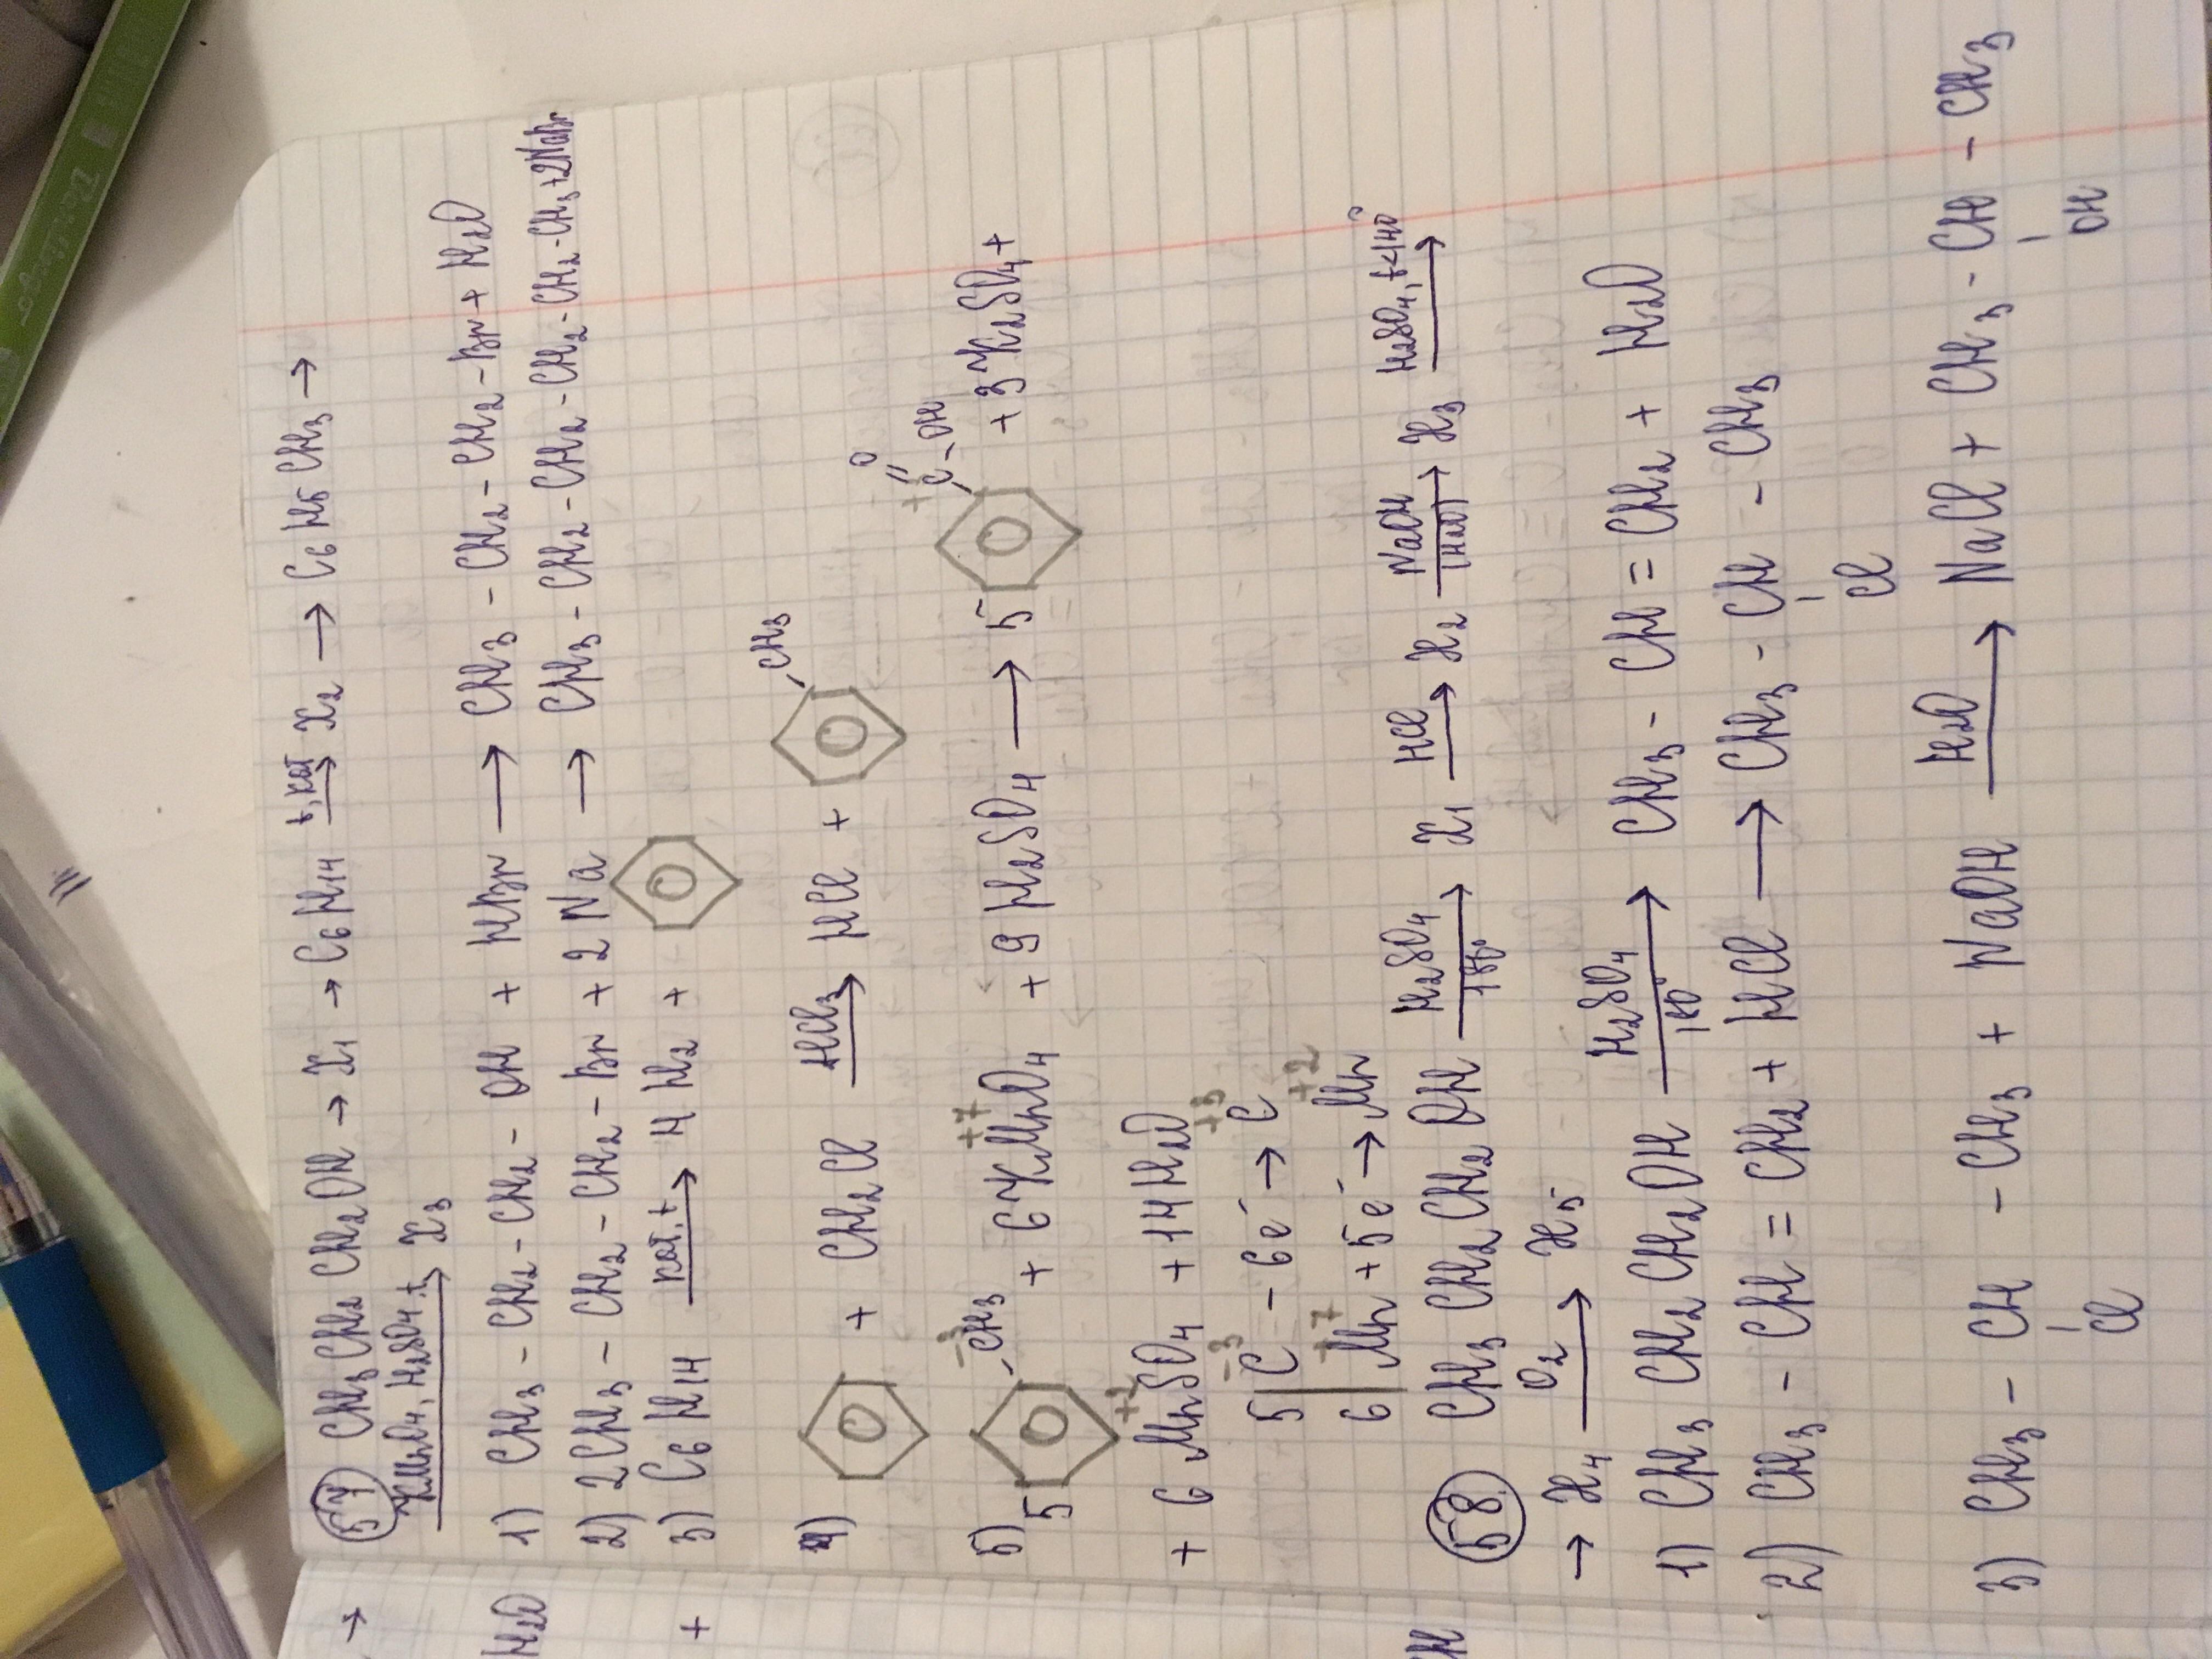 57 CH3CH2CH2OH → X1 → C6H14 t, кат → X2 → C6H5CH3 →
KMnO4, H2SO4, t → X3
1) CH3 - CH2 - CH2 - OH + HBr → CH3 - CH2 - CH2 - Br + H2O
2) 2CH3 - CH2 - CH2 - Br + 2Na → CH3 - CH2 - CH2 - CH2 - CH2 - CH3 + 2NaBr
3) C6H14 кат, t → 4H2 +
4) + CH2Cl → HCl + CH3
5) 5 CH3 -3 + 6KMnO4 +7 + 9H2SO4 → 5 C +3 O OH + 3K2SO4 +
+ 6MnSO4 +2 + 14H2O
5 | C -3 - 6e → C +3
6 | Mn +7 + 5e → Mn +2
58 CH3CH2CH2OH H2SO4 180° → X1 HCl → X2 NaOH (H2O) → X3 H2SO4, t<140° →
→ X4 O2 → X5
1) CH3CH2CH2OH H2SO4 180° → CH3 - CH = CH2 + H2O
2) CH3 - CH = CH2 + HCl → CH3 - CH - CH3
Cl
3) CH3 - CH - CH3 + NaOH H2O → NaCl + CH3 - CH - CH3
Cl OH
→
H2O
+